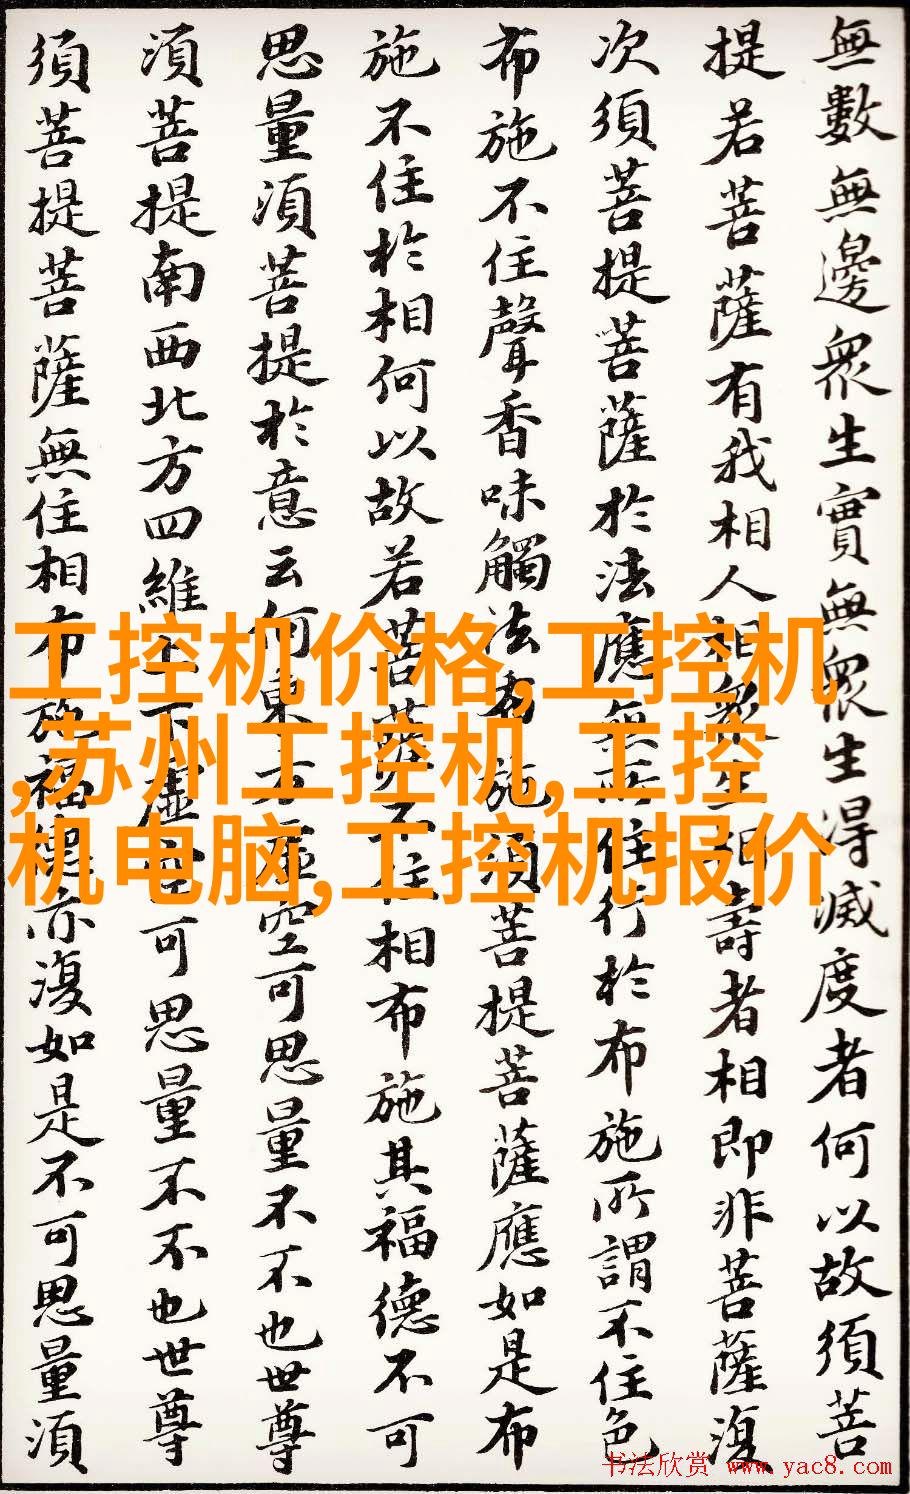 無數無邊眾生實無眾生得滅度者何以故須菩
提若菩薩有我相人相眾生相壽者相即非菩薩復
次須菩提菩薩於法應無所住行於布施所謂不住色
布施不住聲香味觸法布施須菩提菩薩應如是布
施不住於相何以故若菩薩不住相布施其福德不可
思量須菩提於意云何東方虛空可思量不不也世尊
須菩提南西北方四維上下虛空可思量不不也世尊
須菩提菩薩無住相布施福德亦復如是不可思量須
工控机价格,工控机
,苏州工控机,工控
机电脑,工控机报价
书法欣赏 www.yac8.com